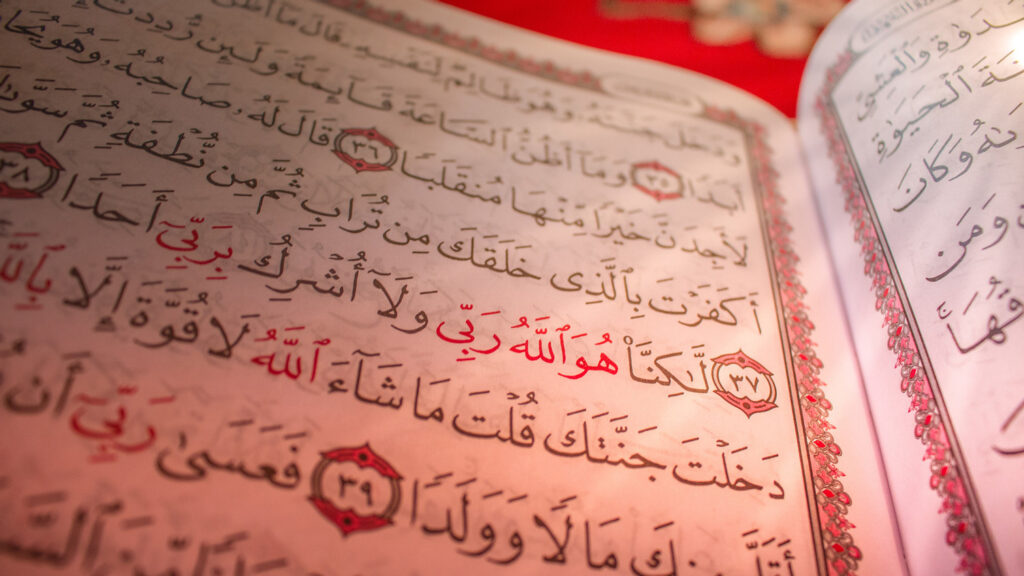 وَدَخَلَ جَنَّتَهُۥ وَهُوَ ظَالِمٌ لِّنَفْسِهِۦ قَالَ مَآ أَظُنُّ
أَبَدًا ٣٥ وَمَآ أَظُنُّ ٱلسَّاعَةَ قَآئِمَةً وَلَئِن رُّدِدتُّ
لَأَجِدَنَّ خَيْرًا مِّنْهَا مُنقَلَبًا ٣٦ قَالَ لَهُۥ صَاحِبُهُۥ وَهُوَ
أَكَفَرْتَ بِٱلَّذِى خَلَقَكَ مِن تُرَابٍ ثُمَّ مِن نُّطْفَةٍ ثُمَّ
٣٧ لَّـٰكِنَّا۠ هُوَ ٱللَّهُ رَبِّى وَلَآ أُشْرِكُ بِرَبِّىٓ أَحَدًا ٣٨
دَخَلْتَ جَنَّتَكَ قُلْتَ مَا شَآءَ ٱللَّهُ لَا قُوَّةَ إِلَّا بِٱللَّهِ
مَالًا وَوَلَدًا ٣٩ فَعَسَىٰ رَبِّىٓ أَن
وَٱلْعَشِىِّ
ٱلْحَيَوٰةِ
وَكَانَ
وَمَن